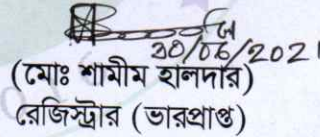 30/06/202
(মোঃ শামীম হালদার)
রেজিস্ট্রার (ভারপ্রাপ্ত)